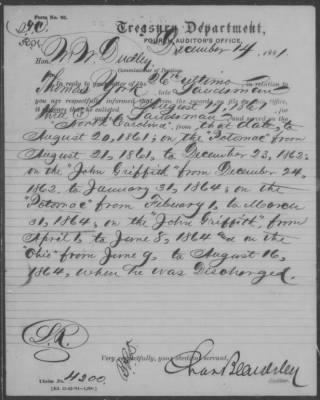 Form No. 93.
Treasury Department,
FOURTH AUDITOR'S OFFICE,
December 14, 1881.
Hon. W. W. Dudley
Commissioner of Pensions
26th ultimo in relation to
Thomas York Landsman
you are respectfully informed that from the records on file in this Office,
that he enlisted August 17, 1861
Landsman and served on the
"North Carolina", from that date to
August 20, 1861; on the "Potomac" from
August 21, 1861, to December 23, 1862;
on the "John Griffith" from December 24,
1862, to January 31, 1864; on the
"Potomac" from February 1, to March
31, 1864; on the "John Griffith", from
April 1, to June 8, 1864 and on the
"Ohio" from June 9, to August 16,
1864, when he was Discharged.
Very respectfully, your obedient servant,
Chas Beardsley
Auditor.
Claim No. 4200.